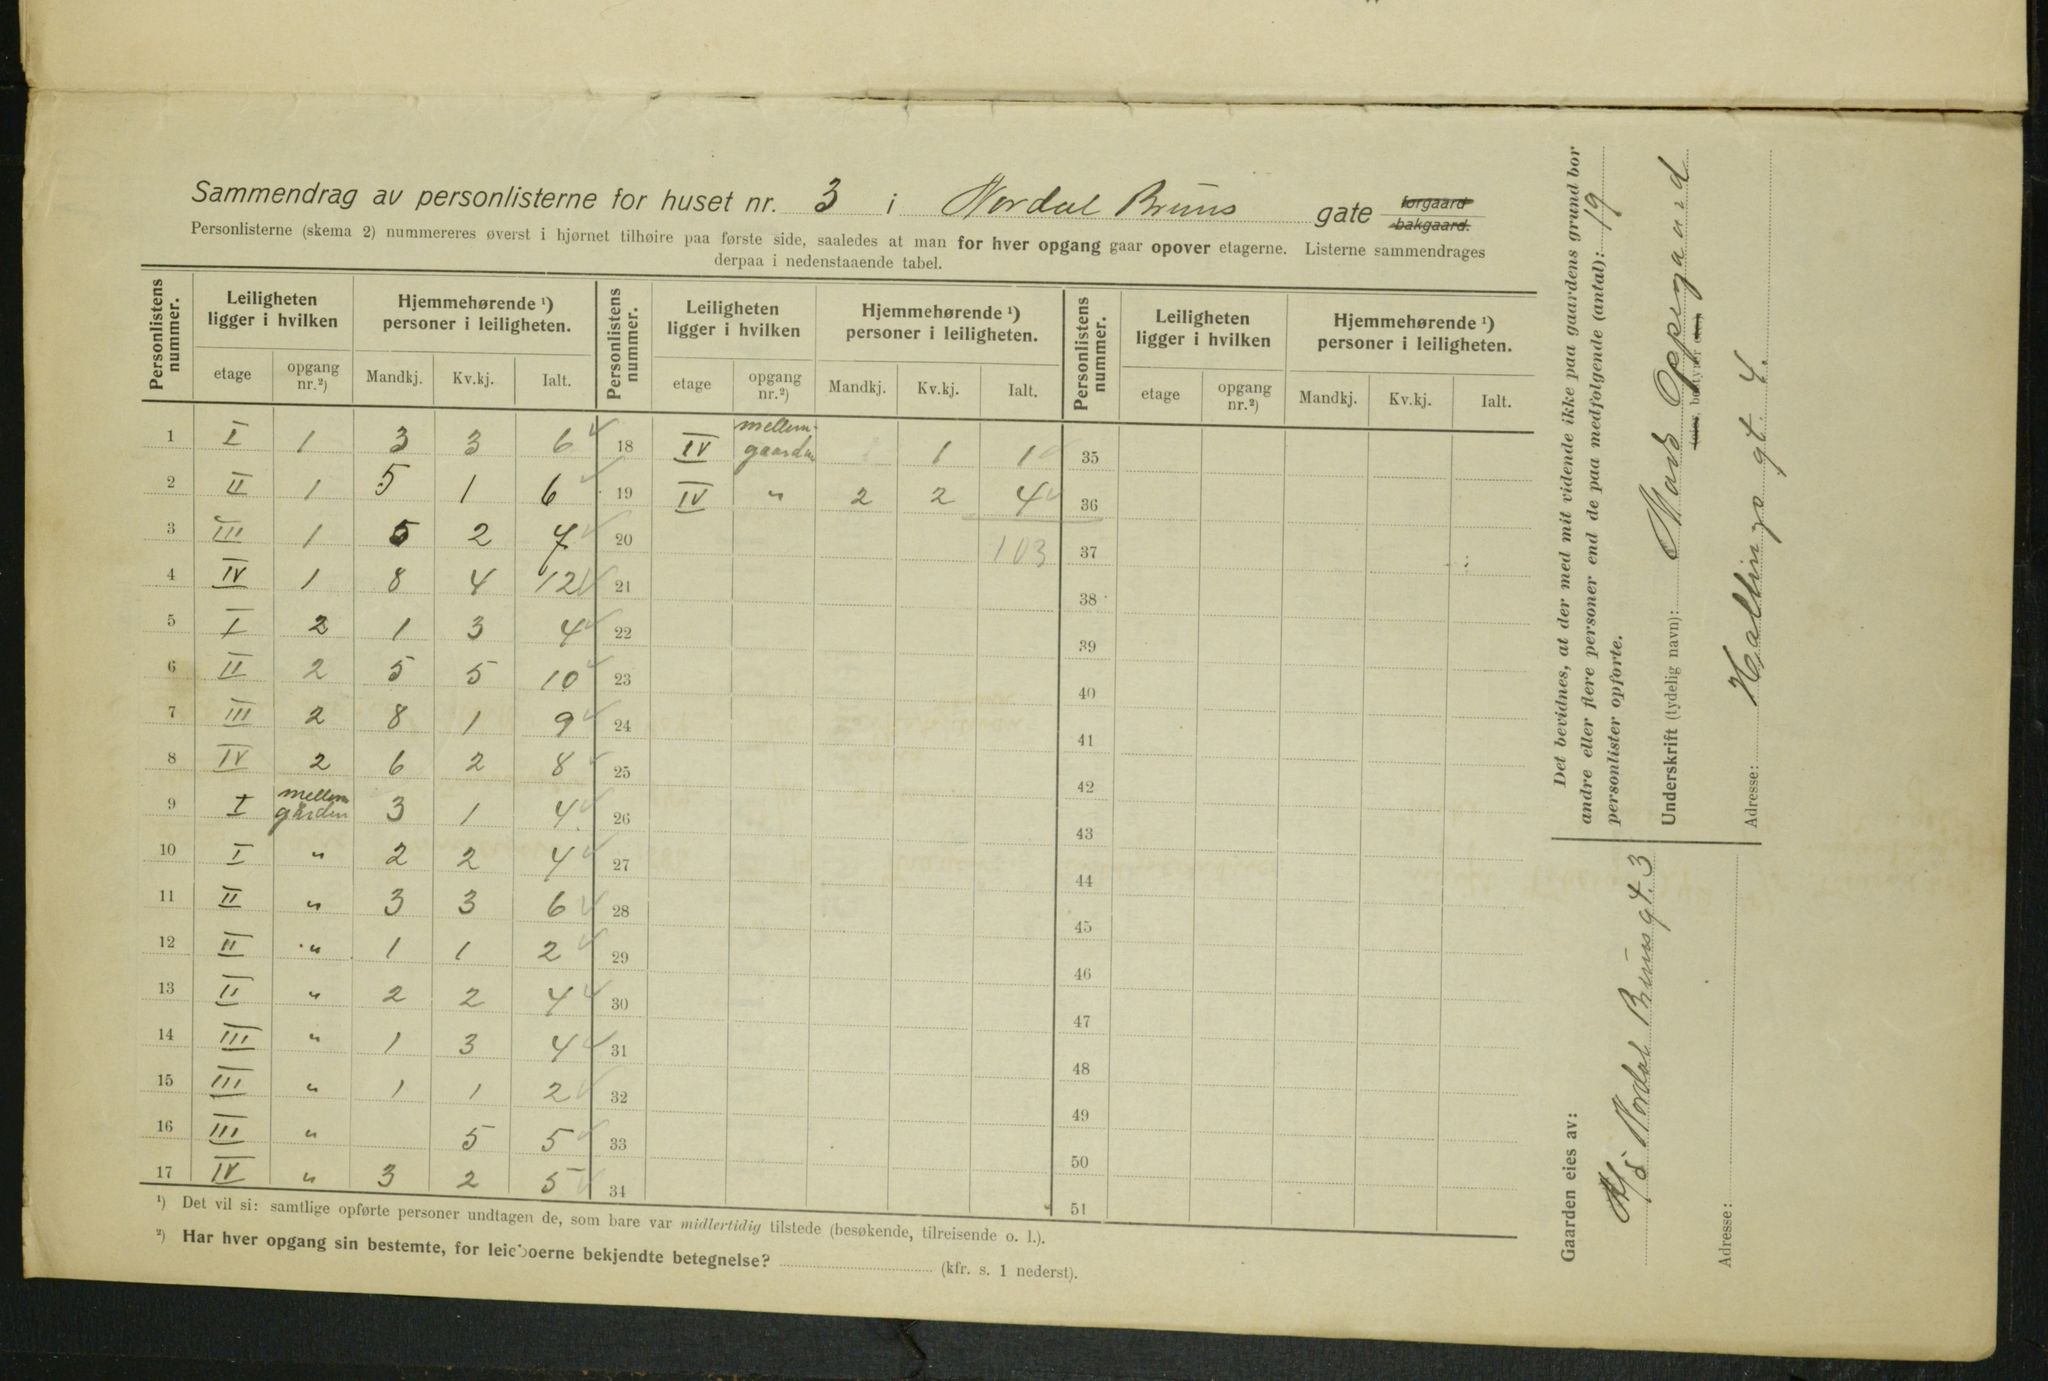 Sammendrag av personlisterne for huset nr. 3 i Nordal Bruns gate forgaard bakgaard.
Personlisterne (skema 2) nummereres øverst i hjørnet tilhøire paa første side, saaledes at man for hver opgang gaar opover etagerne. Listerne sammendrages
derpaa i nedenstaaende tabel.
Personlistens nummer. Leiligheten ligger i hvilken Hjemmehørende ¹) personer i leiligheten. Personlistens nummer. Leiligheten ligger i hvilken Hjemmehørende ¹) personer i leiligheten. Personlistens nummer. Leiligheten ligger i hvilken Hjemmehørende ¹) personer i leiligheten.
etage opgang nr.²) Mandkj. Kv.kj. Ialt. etage opgang nr.²) Mandkj. Kv.kj. Ialt. etage opgang nr.²) Mandkj. Kv.kj. Ialt.
1 I 1 3 3 6 18 IV mellem-gaarden 1 1 35
2 II 1 5 1 6 19 IV " 2 2 4 36
3 III 1 5 2 7 20 103 37
4 IV 1 8 4 12 21 38
5 I 2 1 3 4 22 39
6 II 2 5 5 10 23 40
7 III 2 8 1 9 24 41
8 IV 2 6 2 8 25 42
9 I mellem gården 3 1 4 26 43
10 I " 2 2 4 27 44
11 II " 3 3 6 28 45
12 II " 1 1 2 29 46
13 II " 2 2 4 30 47
14 III " 1 3 4 31 48
15 III " 1 1 2 32 49
16 III " 5 5 33 50
17 IV " 3 2 5 34 51
¹) Det vil si: samtlige opførte personer undtagen de, som bare var midlertidig tilstede (besøkende, tilreisende o. l.).
²) Har hver opgang sin bestemte, for leieboerne bekjendte betegnelse? (kfr. s. 1 nederst).
Det bevidnes, at der med mit vidende ikke paa gaardens grund bor
andre eller flere personer end de paa medfølgende (antal): 19
personlister opførte.
Underskrift (tydelig navn): Oppegaard
Adresse: Hallings gt. 4.
Gaarden eies av:
A/S Nordal Bruns gt. 3
Adresse: